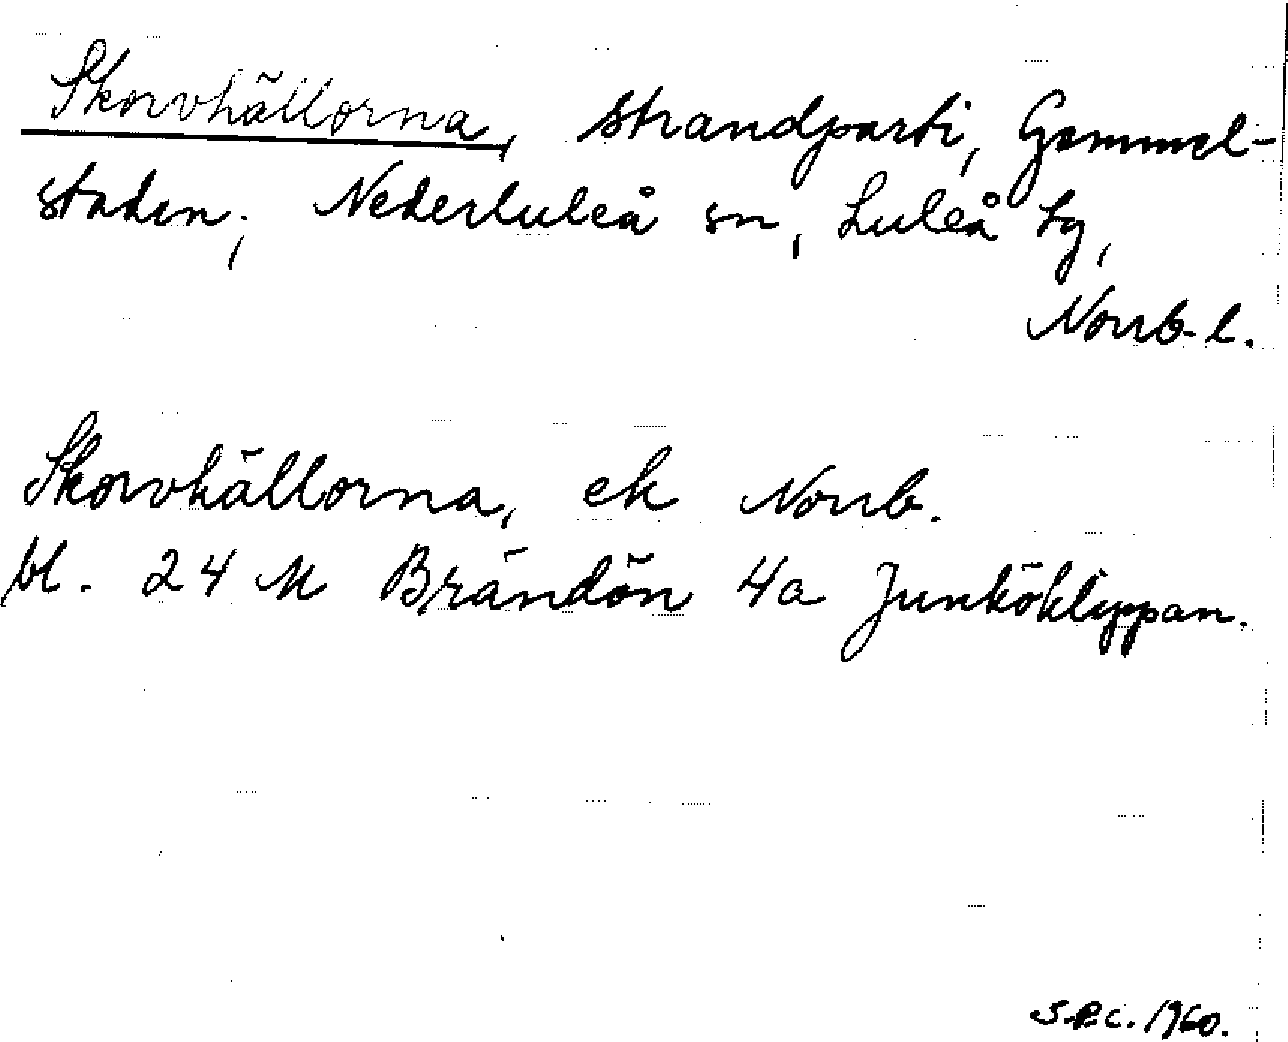 Skorvhällorna, strandparti, Gammel-
staden, Nederluleå sn, Luleå tg,
Norrb. l.
Skorvhällorna, ek Norrb.
bl. 24 M Brändön 4a Junköklippan.
S.P.C. 1960.